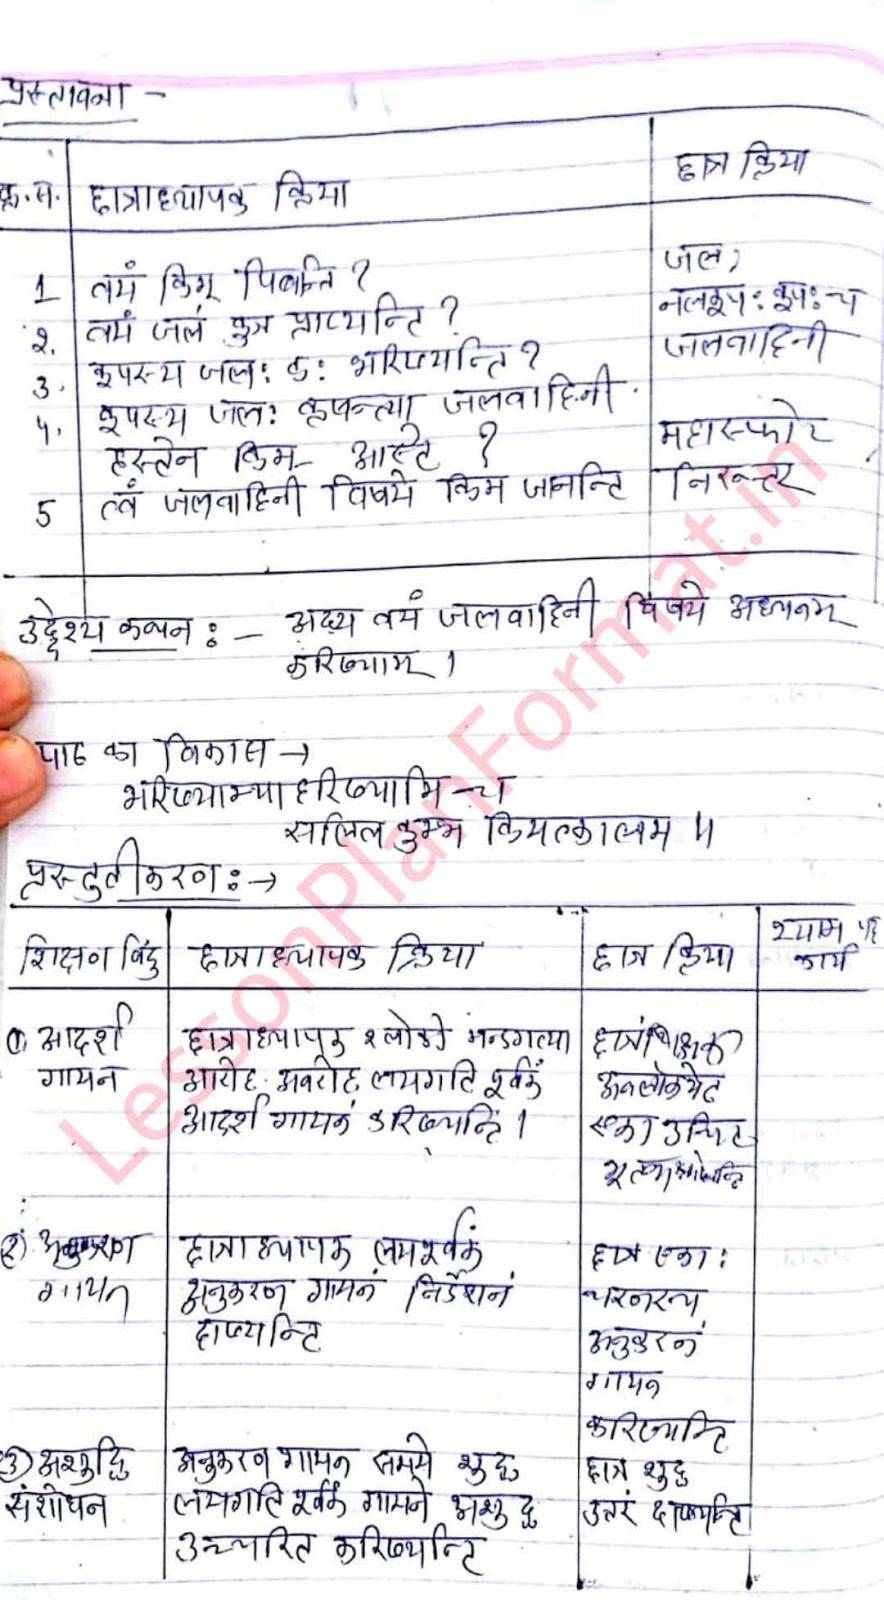 प्रस्तावना -
क्र.स. छात्राध्यापक क्रिया छात्र क्रिया
1 वयं किम् पिबन्ति ? जल,
2. वयं जलं कुत्र प्राप्यन्टि ? नलकूप: कूप: च
3. कूपस्य जल: क: भरिष्यन्ति ? जलवाहिनी
4. कूपस्य जल: जलवाहिनी
हस्तेन किम- ? महास्फोट
5 त्वं जलवाहिनी विषये किम जानन्टि निरुत्तर
उद्देश्य कथन : - अद्य वयं जलवाहिनी विषये अध्यनम्
करिष्याम् ।
पाठ का विकास →
भरिष्याम्याहरिष्यामि च
सलिल कुम्भ कियत्कालम ॥
प्रस्तुतीकरण : →
शिक्षण बिंदु छात्राध्यापक क्रिया छात्र क्रिया श्याम पट्ट
कार्य
① आदर्श छात्राध्यापक श्लोको मन्दगत्या
गायन आरोह अवरोह लयगति पूर्वकं
आदर्श गायनं करिष्यन्टि । उचित
2) अनुकरण छात्राध्यापक लयपूर्वकं छात्र एका :
गायन अनुकरन गायनं निर्देशनं
दाष्यन्टि अनुकरनं
गायन
करिष्यन्टि
③ अशुद्धि अनुकरन गायन समये शुद्ध छात्र शुद्ध
संशोधन लयगति पूर्वकं गायने अशुद्ध उत्तरं दाष्यन्टि
उच्चारित करिष्यन्टि
LessonPlanFormat.in